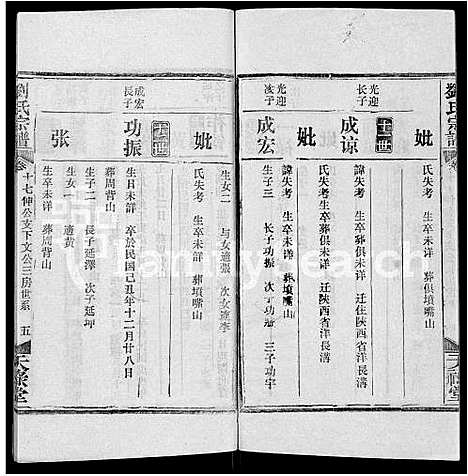 劉氏宗譜
天祿堂
妣
氏失考 生卒未詳 葬俱墳嘴山
光迎長子
成諒
諱失考 生卒葬俱未詳 迁住陝西省洋長溝
妣
氏失考 生卒葬俱未詳 迁住陝西省洋長溝
光迎次子
成宏
諱失考 生卒未詳 葬墳嘴山
生子三 長子功振 次子功 三子功宇
妣
氏失考 生卒未詳 葬墳嘴山
生女二 長女適張 次女適李
成宏長子
功振
生日未詳 卒於民國己丑年十二月廿八日
葬周背山
生子二 長子延澤 次子延坤
生女一 適黃
張
生卒未詳 葬周背山
劉氏宗譜
卷十七伸公支下文公三房世系 五
天祿堂